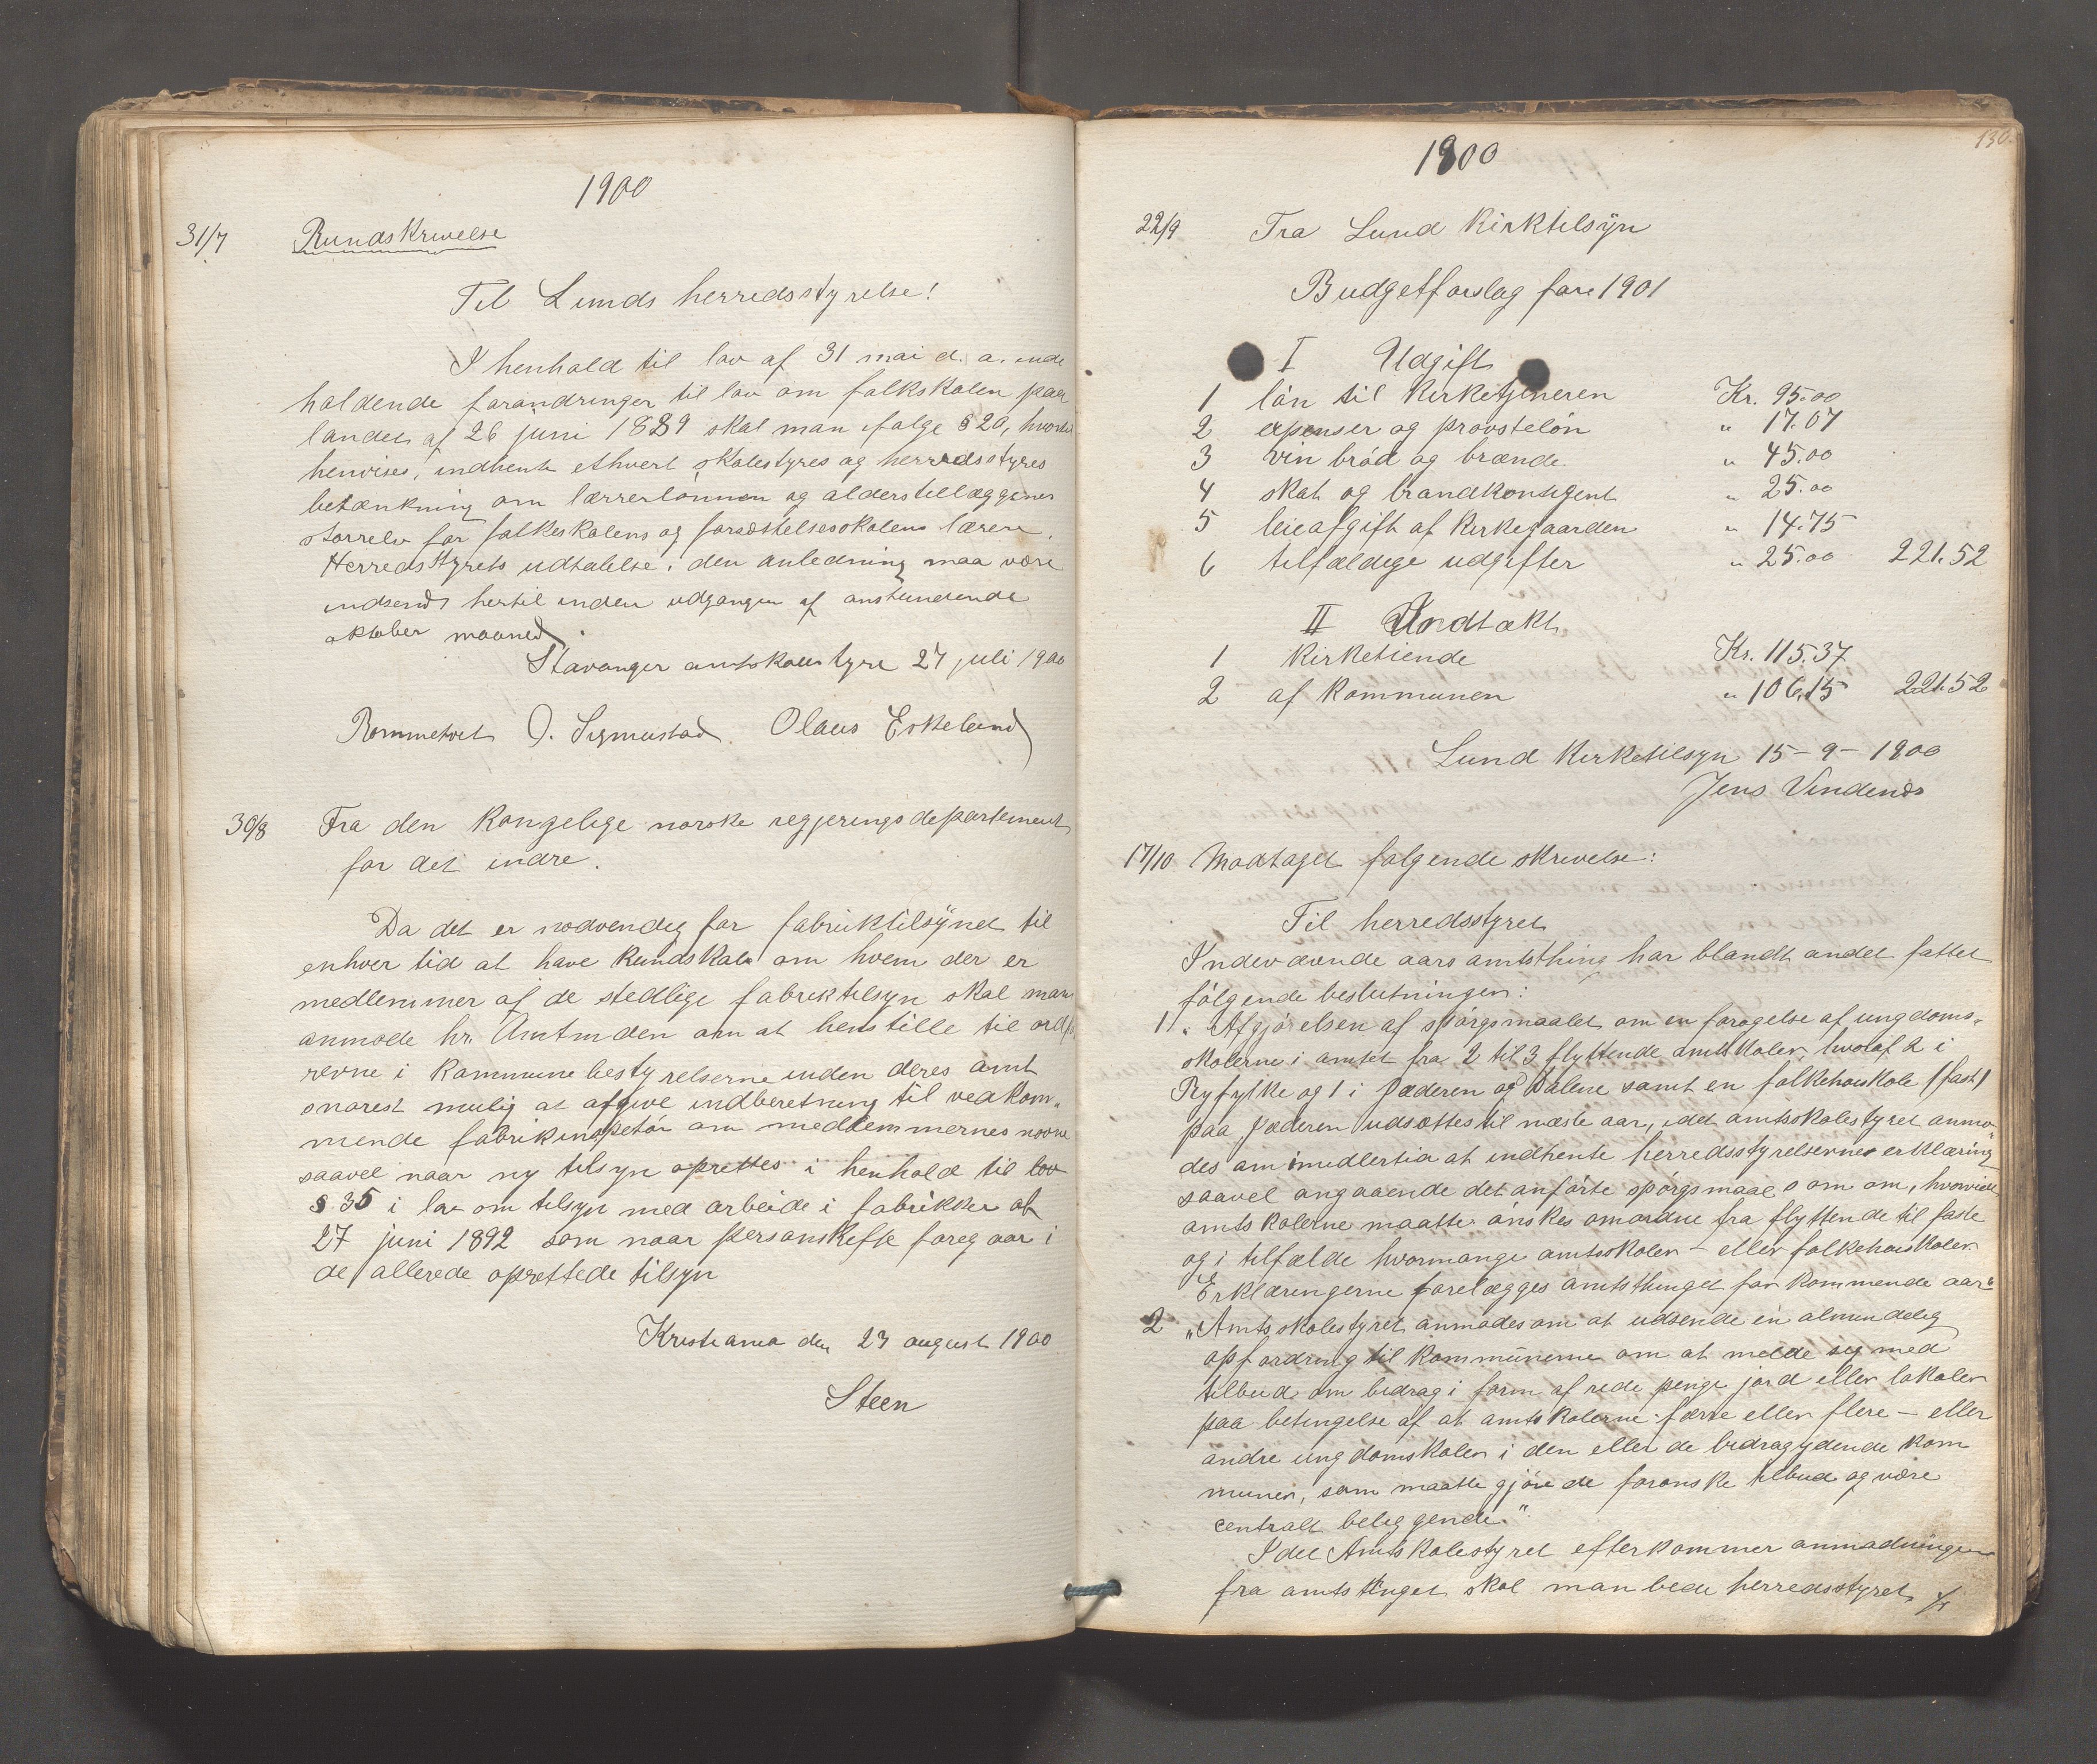 1900
31/7 Rundskrivelse
Til Lunds herredsstyrelse!
I henhold til lov af 31 mai d. a. inde
holdende forandringer til lov om folkskolen paa
landet af 26 juni 1889 skal man ifølge § 20, hvortil
henvises, indhente ethvert skolestyres og herredsstyres
betænkning om lærerlønnen og alderstillæggenes
størrelse for folkeskolens og fortsættelsesskolens lærere.
Herredsstyrets udtalelse i den anledning maa være
indsendt hertil inden udgangen af anstundende
oktober maaned.
Stavanger amtskolestyre 27 juli 1900
Rommetvet O. Sigmustad Olaus Eskeland
30/8 Fra den kongelige norske regjeringsdepartement
for det indre.
Da det er nødvendig for fabriktilsÿnet til
enhver tid at have kundskab om hvem der er
medlemmer af de stedlige fabriktilsyn skal man
anmode hr. Amtmden om at henstille til ordfø
rerne i kommunebestyrelserne inden deres amt
snarest mulig at afgive indberetning til vedkom„
mende fabrikinspetør om medlemmernes navne
saavel naar ny tilsyn oprettes i henhold til lov
§ 35 i lov om tilsyn med arbeide i fabrikker af
27 juni 1892 som naar personskifte foregaar i
de allerede oprettede tilsyn
Kristiania den 23 august 1900
Steen
130.
1900
22/9 Fra Lund Kirktilsÿn
Budgetforslag fore 1901
I Udgift
1 løn til Kirketjeneren Kr. 95.00
2 expenser og provsteløn " 17.07
3 vin brød og brænde " 45.00
4 skat og brandkontigent " 25.00
5 leieafgift af Kirkegaarden " 14.75
6 tilfældige udgifter " 25.00 221.52
II Indtækt
1 Kirketiende Kr. 115.37
2 af Kommunen " 106.15 221.52
Lund Kirketilsyn 15-9-1900
Jens Vindenes
17/10 Modtaget følgende skrivelse:
Til herredsstyret
Indeværende aars amtsthing har blandt andet fattet
følgende beslutninger:
1. „Afgjørelsen af spørgsmaalet om en forøgelse af ungdoms„
skolerne i amtet fra 2 til 3 flyttende amtskoler, hvoraf 2 i
Ryfylke og 1 i Jæderen og Dalene samt en folkehøiskole (fast)
paa Jæderen udsættes til næste aar, idet amtsskolestyret anmo„
des om imidlertid at indhente herredsstyrelsernes erklæring
saavel angaaende det anførte spørgsmaal som om, hvorvidt
amtskolerne maatte ønskes omordne fra flyttende til faste
og i tilfælde hvormange amtsskoler - eller folkehøiskoler.
Erklæringerne forelægges amtsthinget for kommende aar"
2 „Amtsskolestyret anmodes om at udsende en almindelig
opfordring til kommunerne om at melde sig med
tilbud om bidrag i form af rede penge jord eller lokaler
paa betingelse af at amtskolerne færre eller flere - eller
andre ungdomskoler i den eller de bidragydende kom
muner, som maatte gjøre de forønske tilbud og være
centralt beliggende."
Idet Amtskolestyret efterkommer anmodningen
fra amtstinget skal man bede herredsstyret